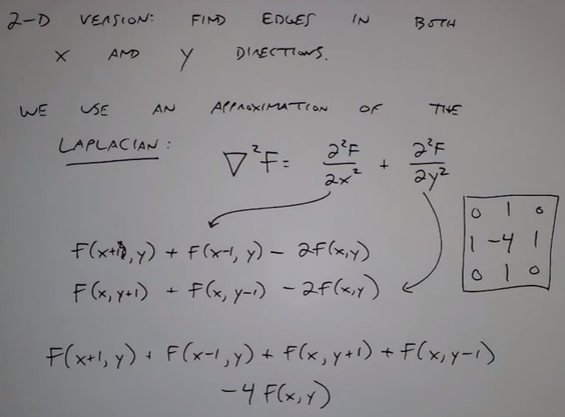 2-D VERSION: FIND EDGES IN BOTH
X AND Y DIRECTIONS.
WE USE AN APPROXIMATION OF THE
LAPLACIAN:
∇²F = ∂²F/∂x² + ∂²F/∂y²
F(x+1, y) + F(x-1, y) - 2F(x,y)
F(x, y+1) + F(x, y-1) - 2F(x,y)
0 1 0
1 -4 1
0 1 0
F(x+1, y) + F(x-1, y) + F(x, y+1) + F(x, y-1)
-4 F(x, y)